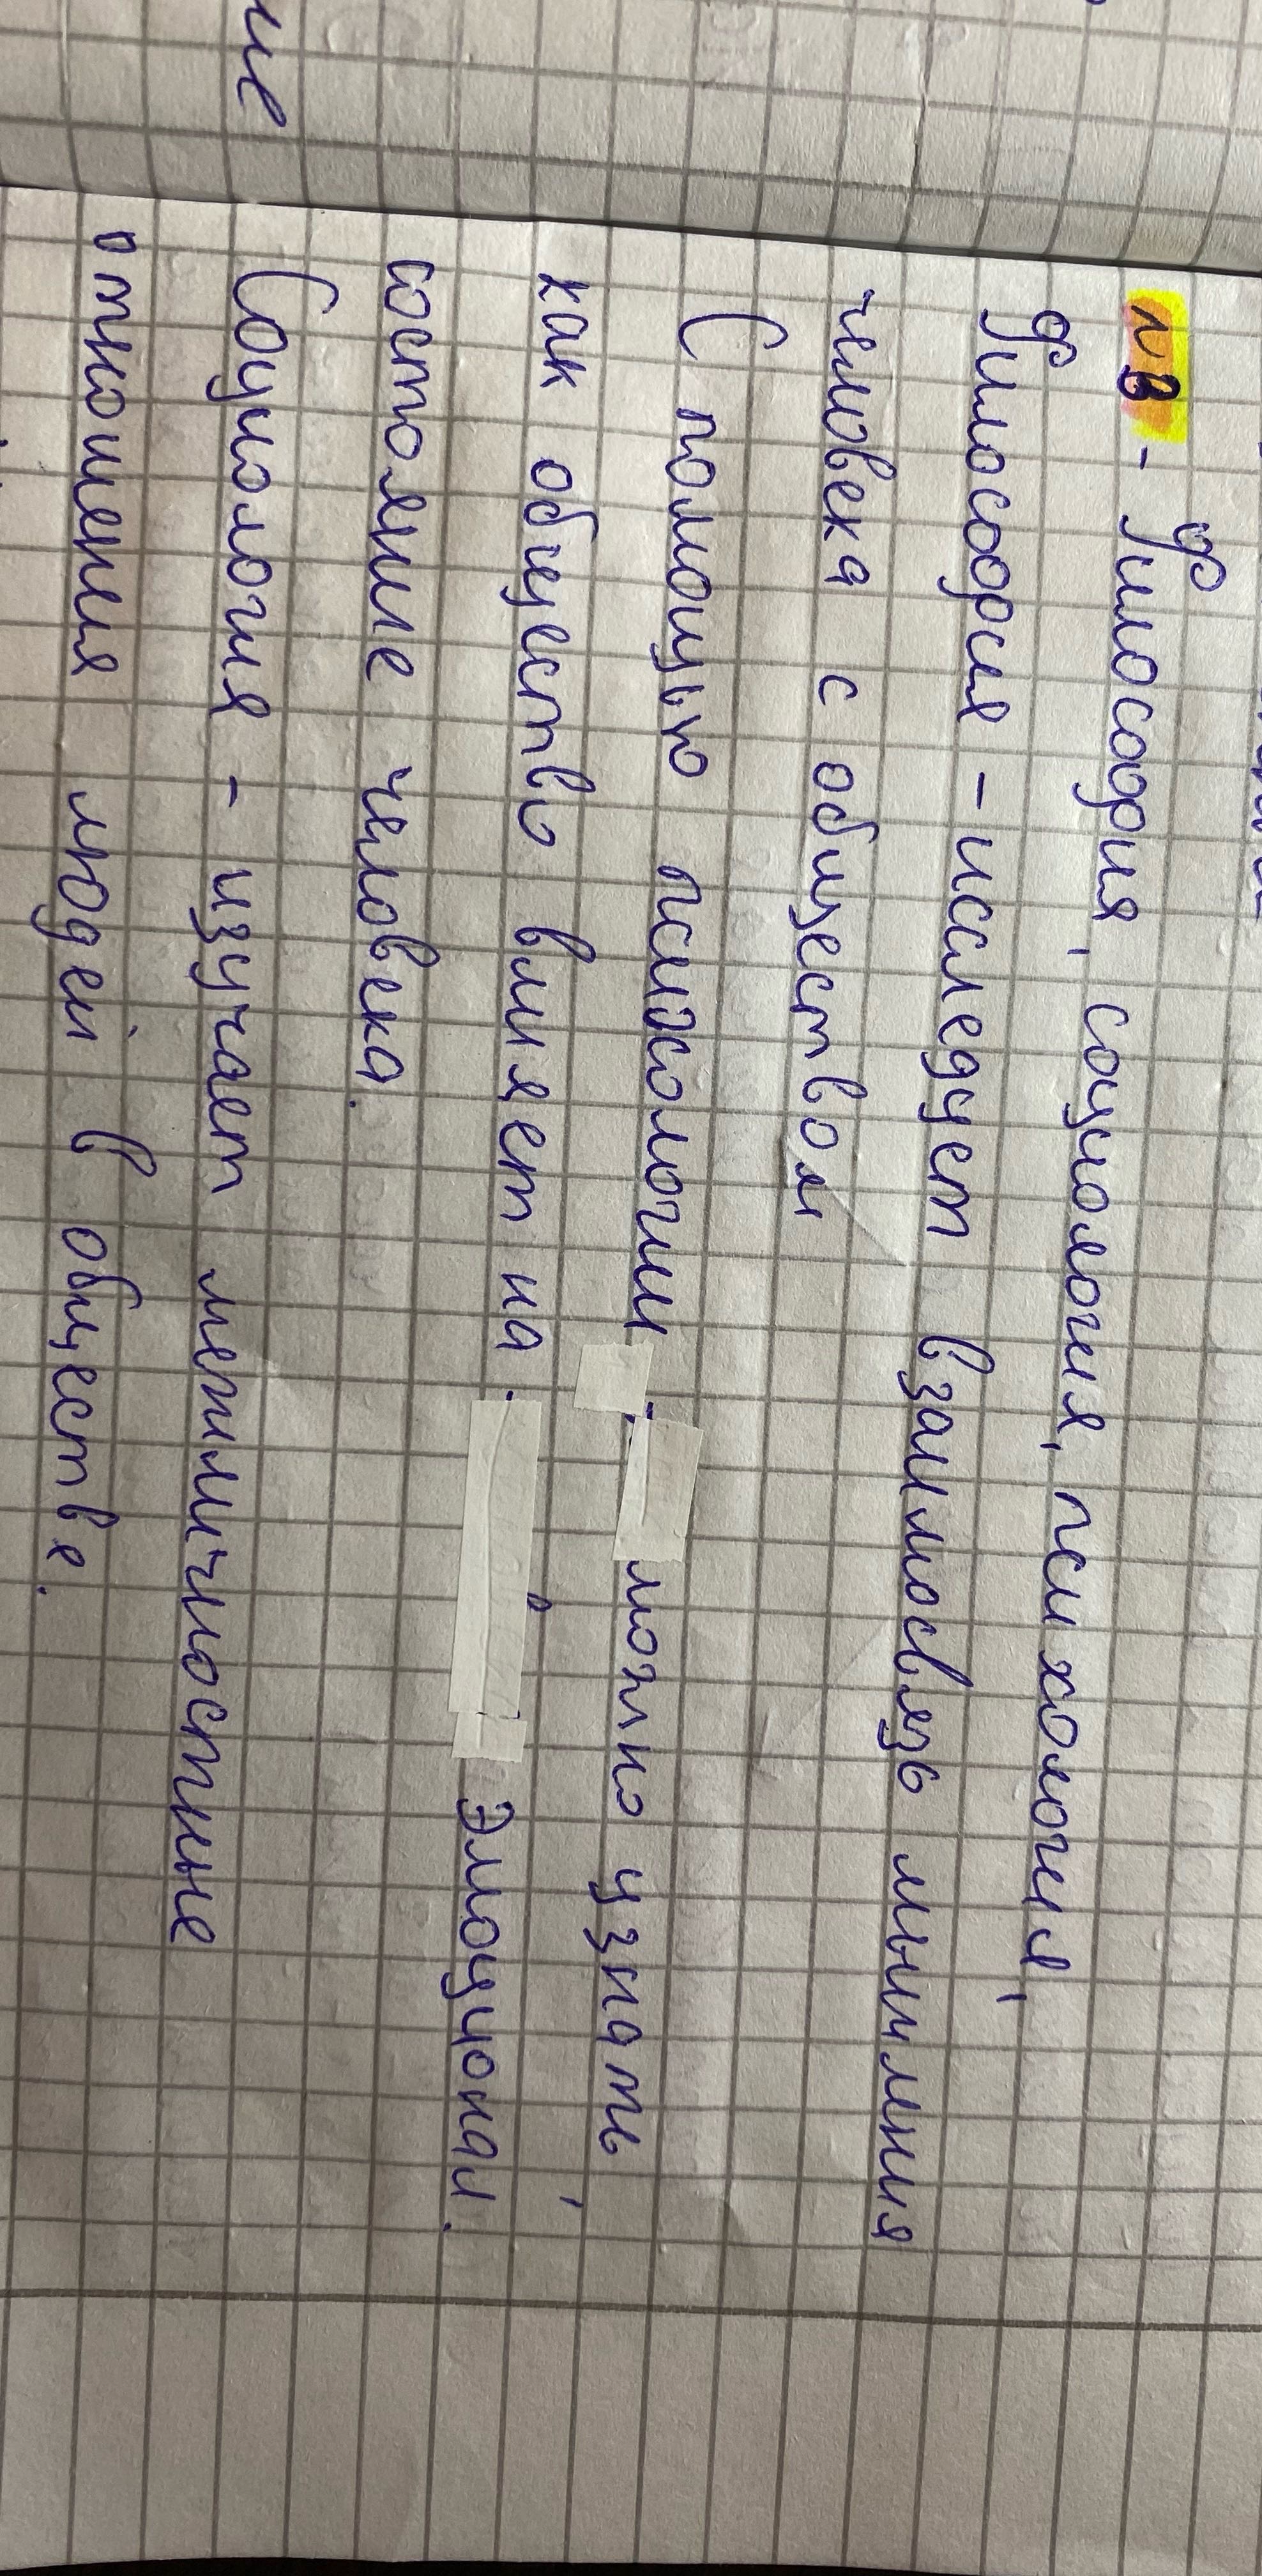 №3 - Философия, социология, психология,
Философия - исследует взаимосвязь мышления
человека с обществом
С помощью психологии, можно узнать
как общество влияет на эмоционал.
состояние человека.
Социология - изучает межличностные
отношения людей в обществе.